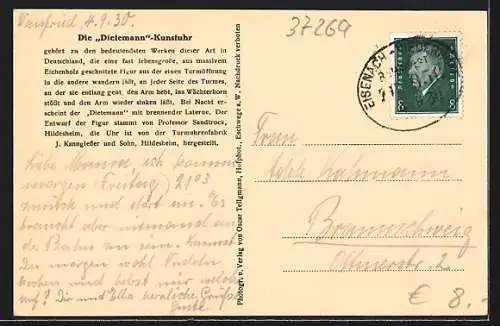 Wanfried 4.9.30.
37269
Die „Dietemann"-Kunstuhr
gehört zu den bedeutendsten Werken dieser Art in
Deutschland, die eine fast lebensgroße, aus massivem
Eichenholz geschnitzte Figur aus der einen Turmöffnung
in die andere wandern läßt, an jeder Seite des Turmes,
an der sie entlang geht, den Arm hebt, ins Wächterhorn
stößt und den Arm wieder sinken läßt. Bei Nacht er-
scheint der „Dietemann" mit brennender Laterne. Der
Entwurf der Figur stammt von Professor Sandtrock,
Hildesheim, die Uhr ist von der Turmuhrenfabrik
J. Kanngießer und Sohn, Hildesheim, hergestellt.
Liebe Mama! ich komme
morgen (Freitag) 21 03
zurück und
braucht aber niemand an
die Bahn zu sein. Kannst
Du morgen wohl Nudeln
kochen und hebst mir welche
auf? Dir und Ella herzliche Grüße
Photogr. u. Verlag von Oscar Tellgmann, Hofphot., Eschwege a. W. Nachdruck verboten
EISENACH
DEUTSCHES REICH
8 8
Frau
Braunschweig
Ottmerstr. 2
€ 8.-